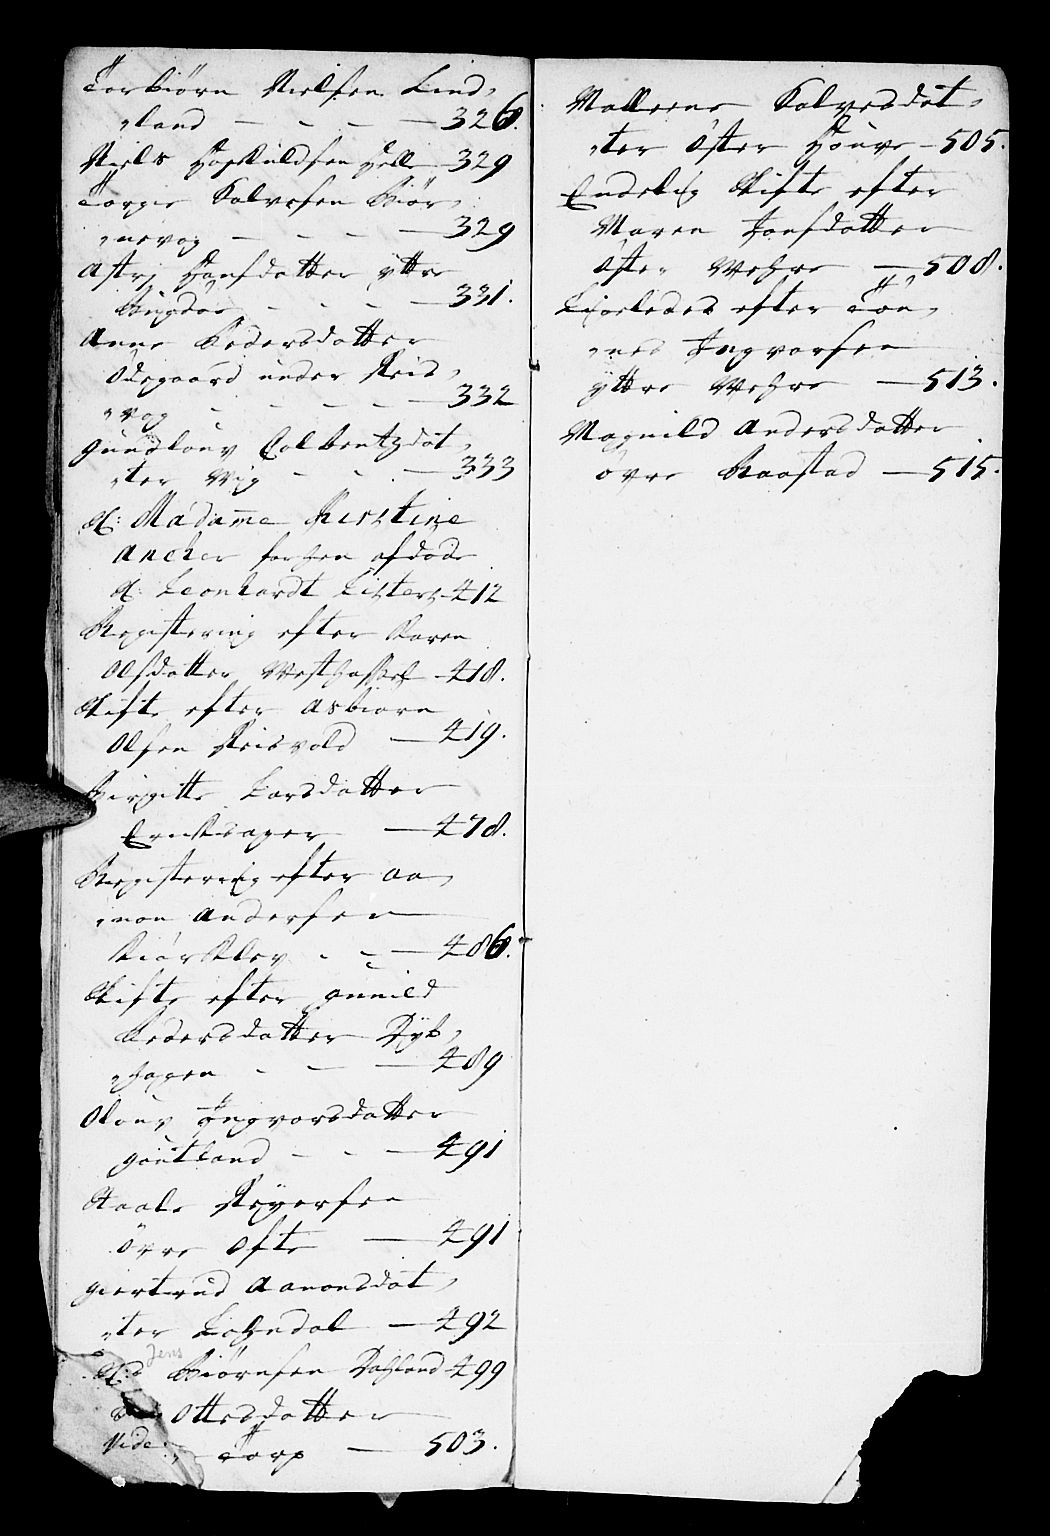 Torbiörn Nielsen Lind,
„land — 326.
Niels Hoskuldsen Helle 329
Torgie Salvesen Kiör,
„nevog — 329
Astri Hansdatter yttre
Bugdøe — 331.
Anne Pedersdatter
Ödegaard under Reis,
„vog — 332
Gundlouv Colbentzdat,
„ter Wig — 333
S: Madame Kirstine
Ancher forhen afdøde
S: Leonhardt Listers 412
Registering efter Karen
Olsdatter Westhassel 418.
Skifte efter Asbiørn
Olsen Reisvold — 419.
Birgitte Larsdatter
— 478.
Registering efter Aa,
„non Andersen
Kiörkelev — 486.
Skifte efter Gunild
Pedersdatter Dyb,
„hagen — 489
Olouv Ingvorsdatter
Goutland — 491
Staale Reyersen
Övre Ofte — 491
Giertrud Aanonsdat,
„ter Lohndal — 492
Jens
Biörnsen Dahland 499
Ottesdatter
Nide „ Torp — 503.
Malleene Salvesdat,
„ter Öster Houve — 505.
Endelig Skifte efter
Maren Jonsdatter
Öster Wehre — 508.
efter Tön,
„nes Ingvorsen
yttre Wehre — 513.
Magnild Andersdatter
övre Raastad — 515.